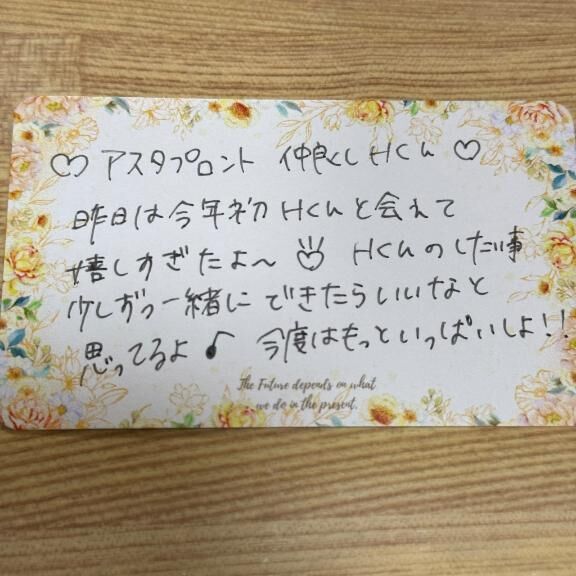 ♡ アスタプロント 仲良くしHくん ♡
昨日は今年初Hくんと会えて
嬉しすぎたよ〜 Hくんのしたい事
少しずつ一緒にできたらいいなと
思ってるよ♪ 今度はもっといっぱいしよ!!
The Future depends on what
we do in the present.